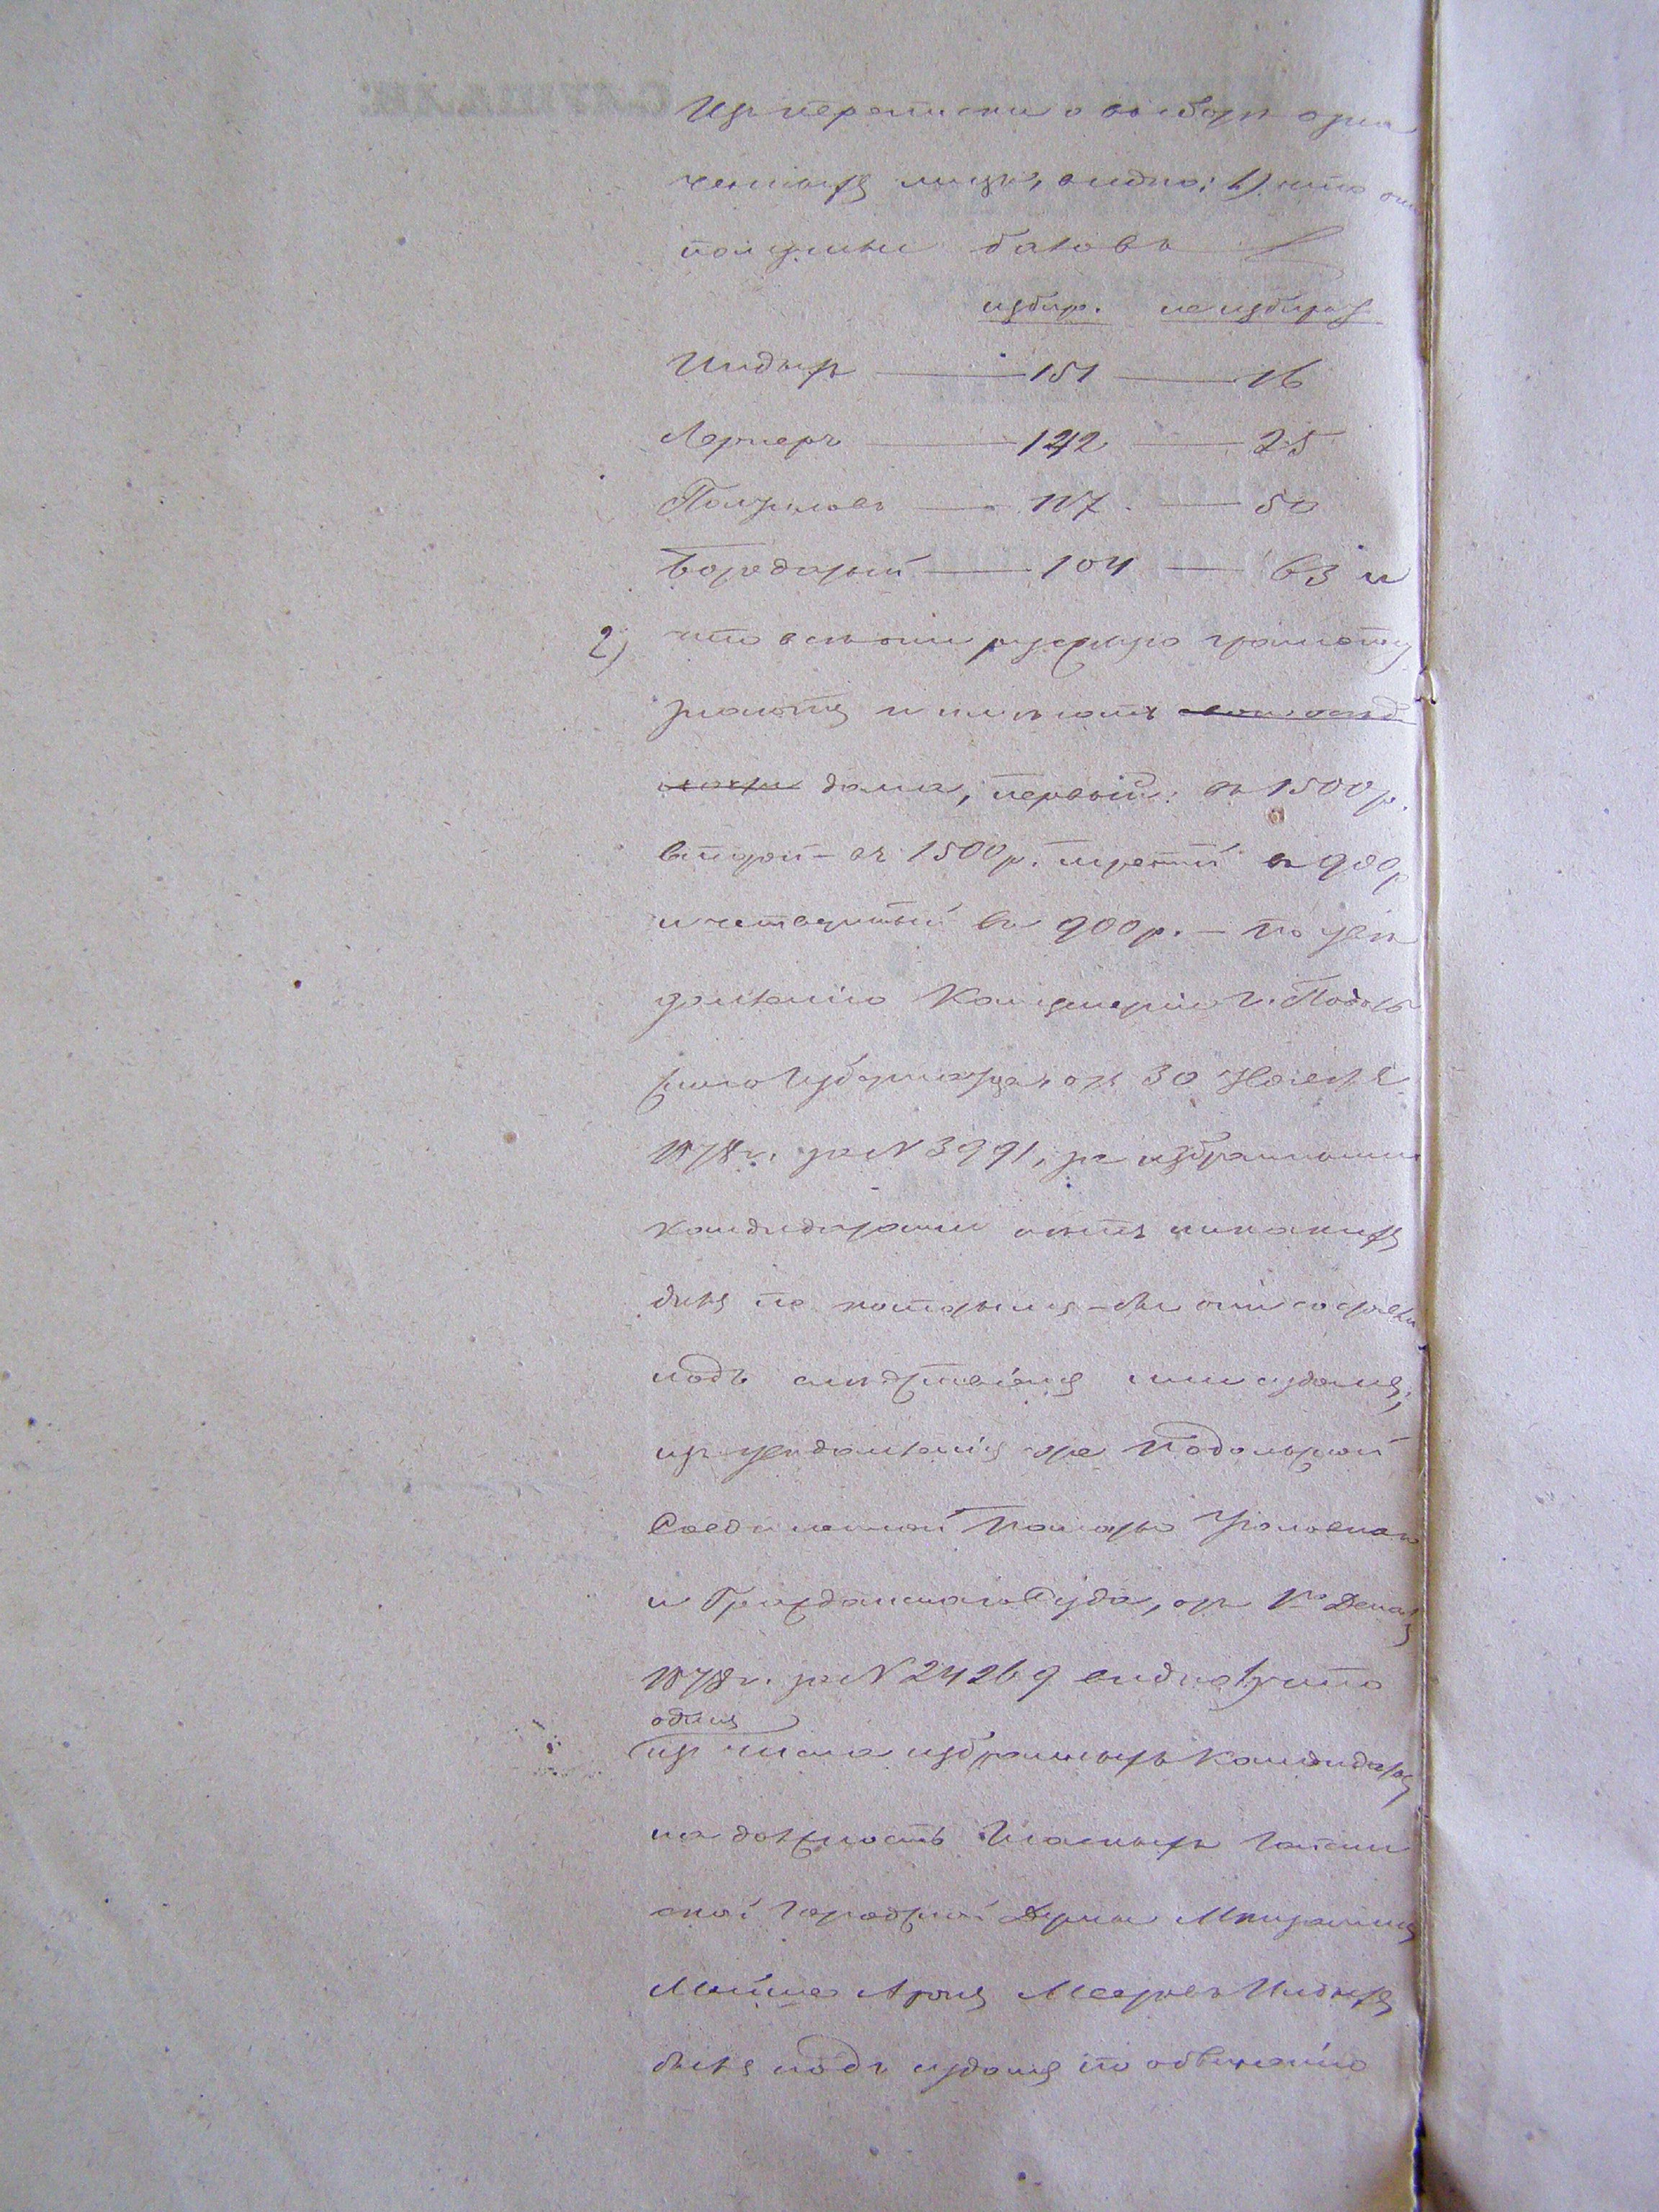 Изъ переписки о выборѣ озна
ченныхъ лицъ, видно: 1) что они
получили баловъ
избир. неизбират.
Индыхъ — 151 — 16
Лернеръ — 142 — 25
— 117. — 50
Бородатый — 104 — 63 и
2) что всѣ они русскую грамоту
знаютъ и имѣютъ
дома, первый: въ 1500 р.
второй – въ 1500 р. третій въ 900 р
и четвертый въ 900 р. – по увѣ
домленію Канцеляріи г. Подоль
скаго Губернатора, отъ 30 Ноября
1878 г. за N 3991, за избранными
кандидатами нѣтъ никакихъ
дѣлъ по которымъ-бы они состояли
подъ слѣдствіемъ или судомъ;
изъ увѣдомленія же Подольской
Соединенной Палаты Уголовнаго
и Гражданскаго Суда, отъ 1го Декаб
1878 г. за N 24269 видно, что
одинъ
изъ числа избранныхъ Кандидатовъ
на должность Гласныхъ
ской Городской Думы Мѣщанинъ
Аронъ Индыхъ
былъ подъ судомъ по обвиненію